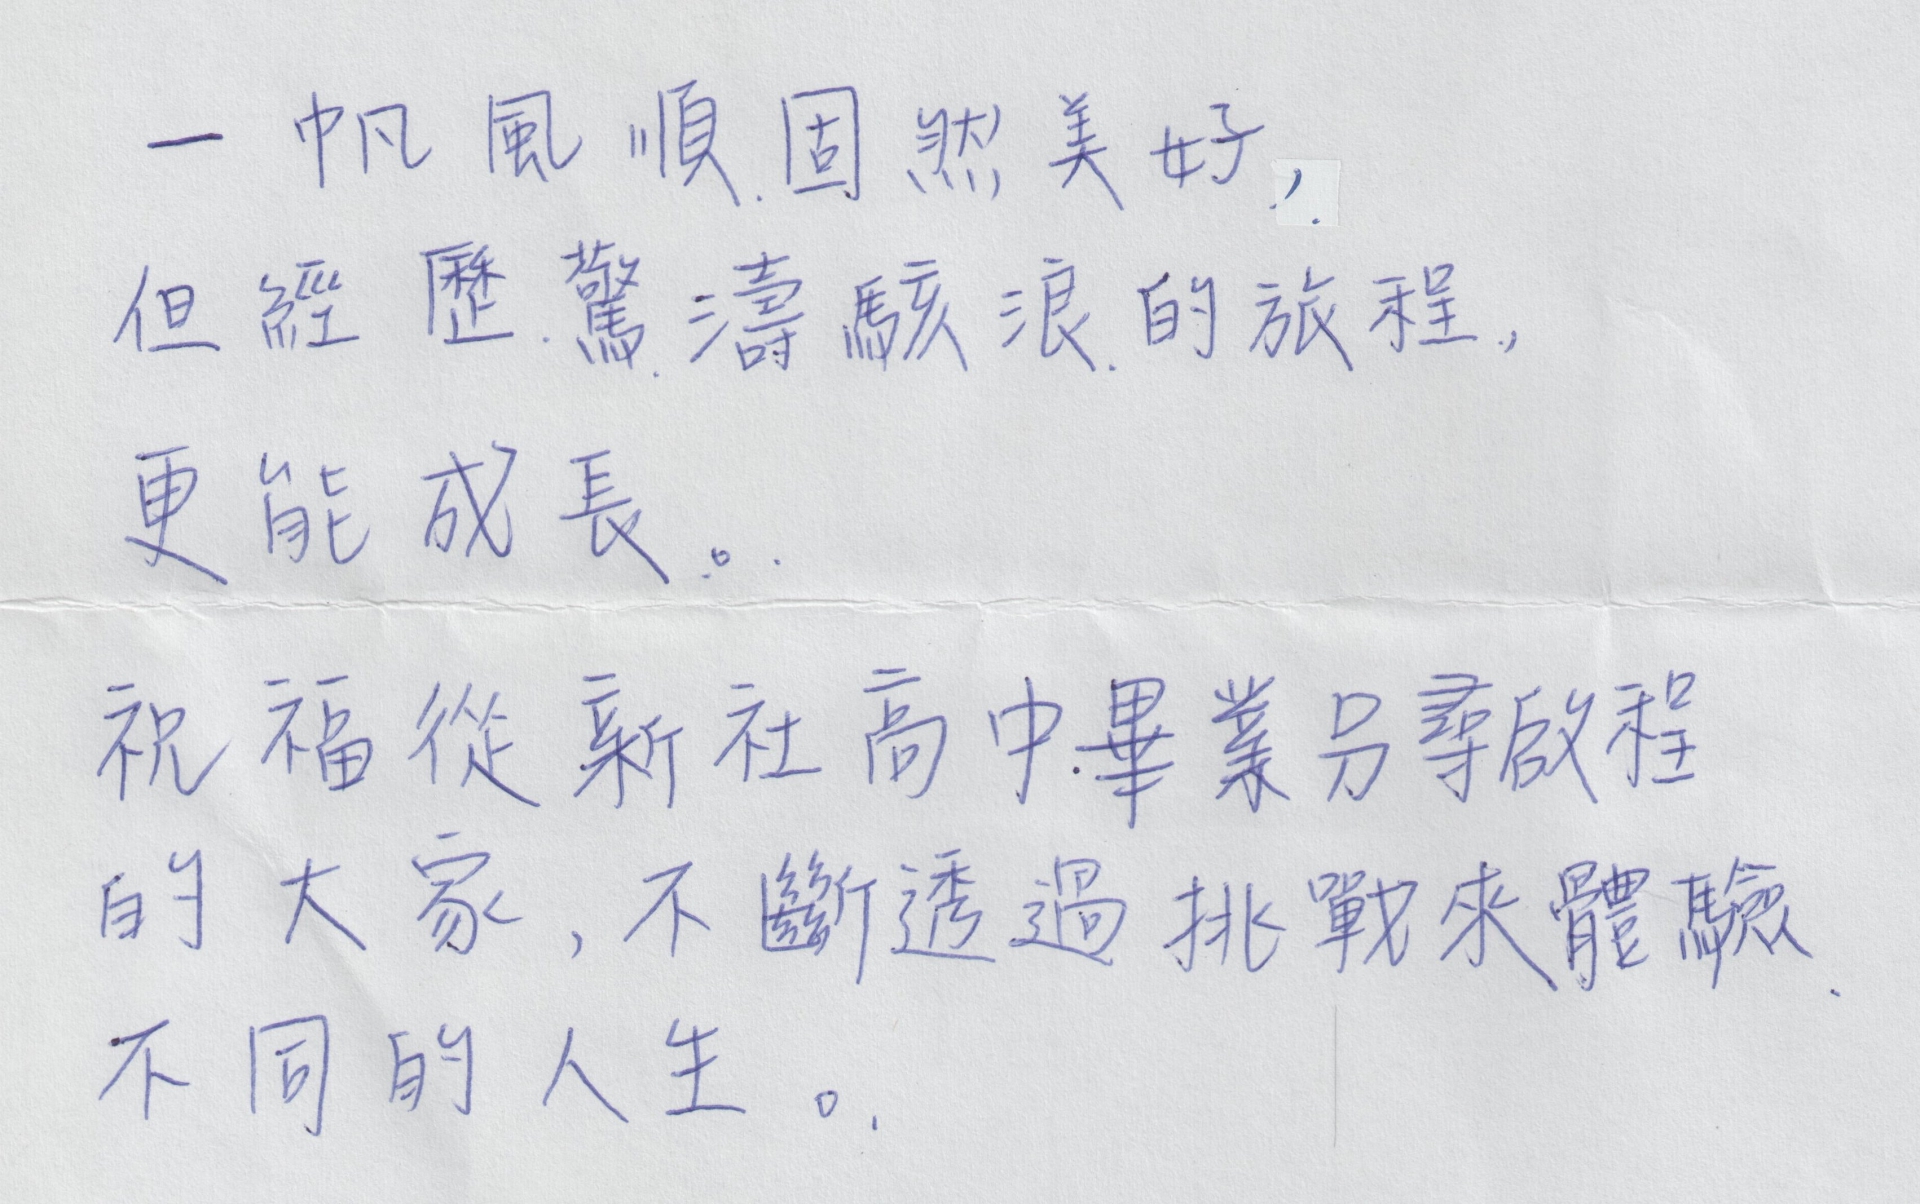 一帆風順固然美好,
但經歷驚濤駭浪的旅程,
更能成長。
祝福從新社高中畢業另尋啟程
的大家,不斷透過挑戰來體驗
不同的人生。